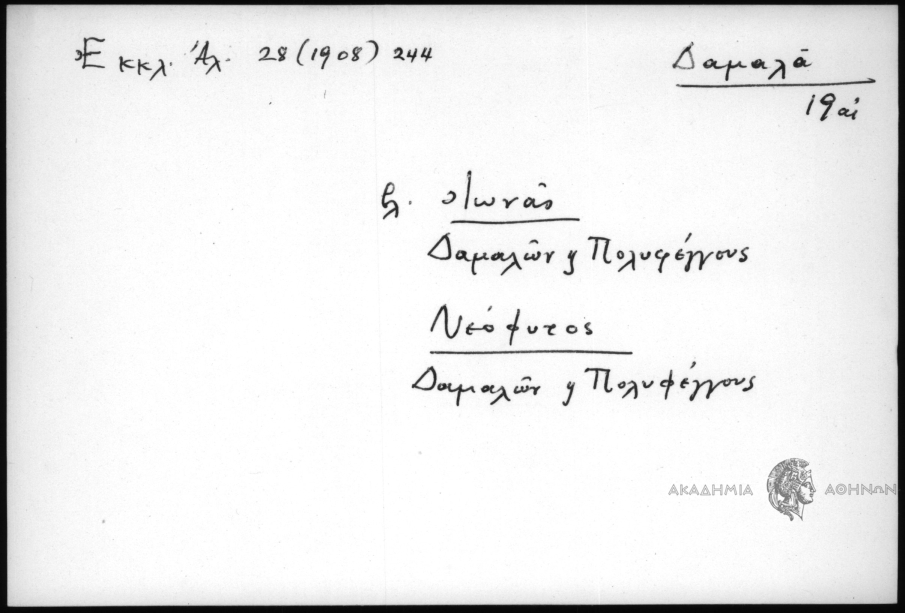 Ἐκκλ. Ἀλ. 28 (1908) 244
Δαμαλᾶ
19 αἰ
βλ. Ἰωνᾶς
Δαμαλῶν ϗ Πολυφέγγους
Νεόφυτος
Δαμαλῶν ϗ Πολυφέγγους
ΑΚΑΔΗΜΙΑ ΑΘΗΝΩΝ